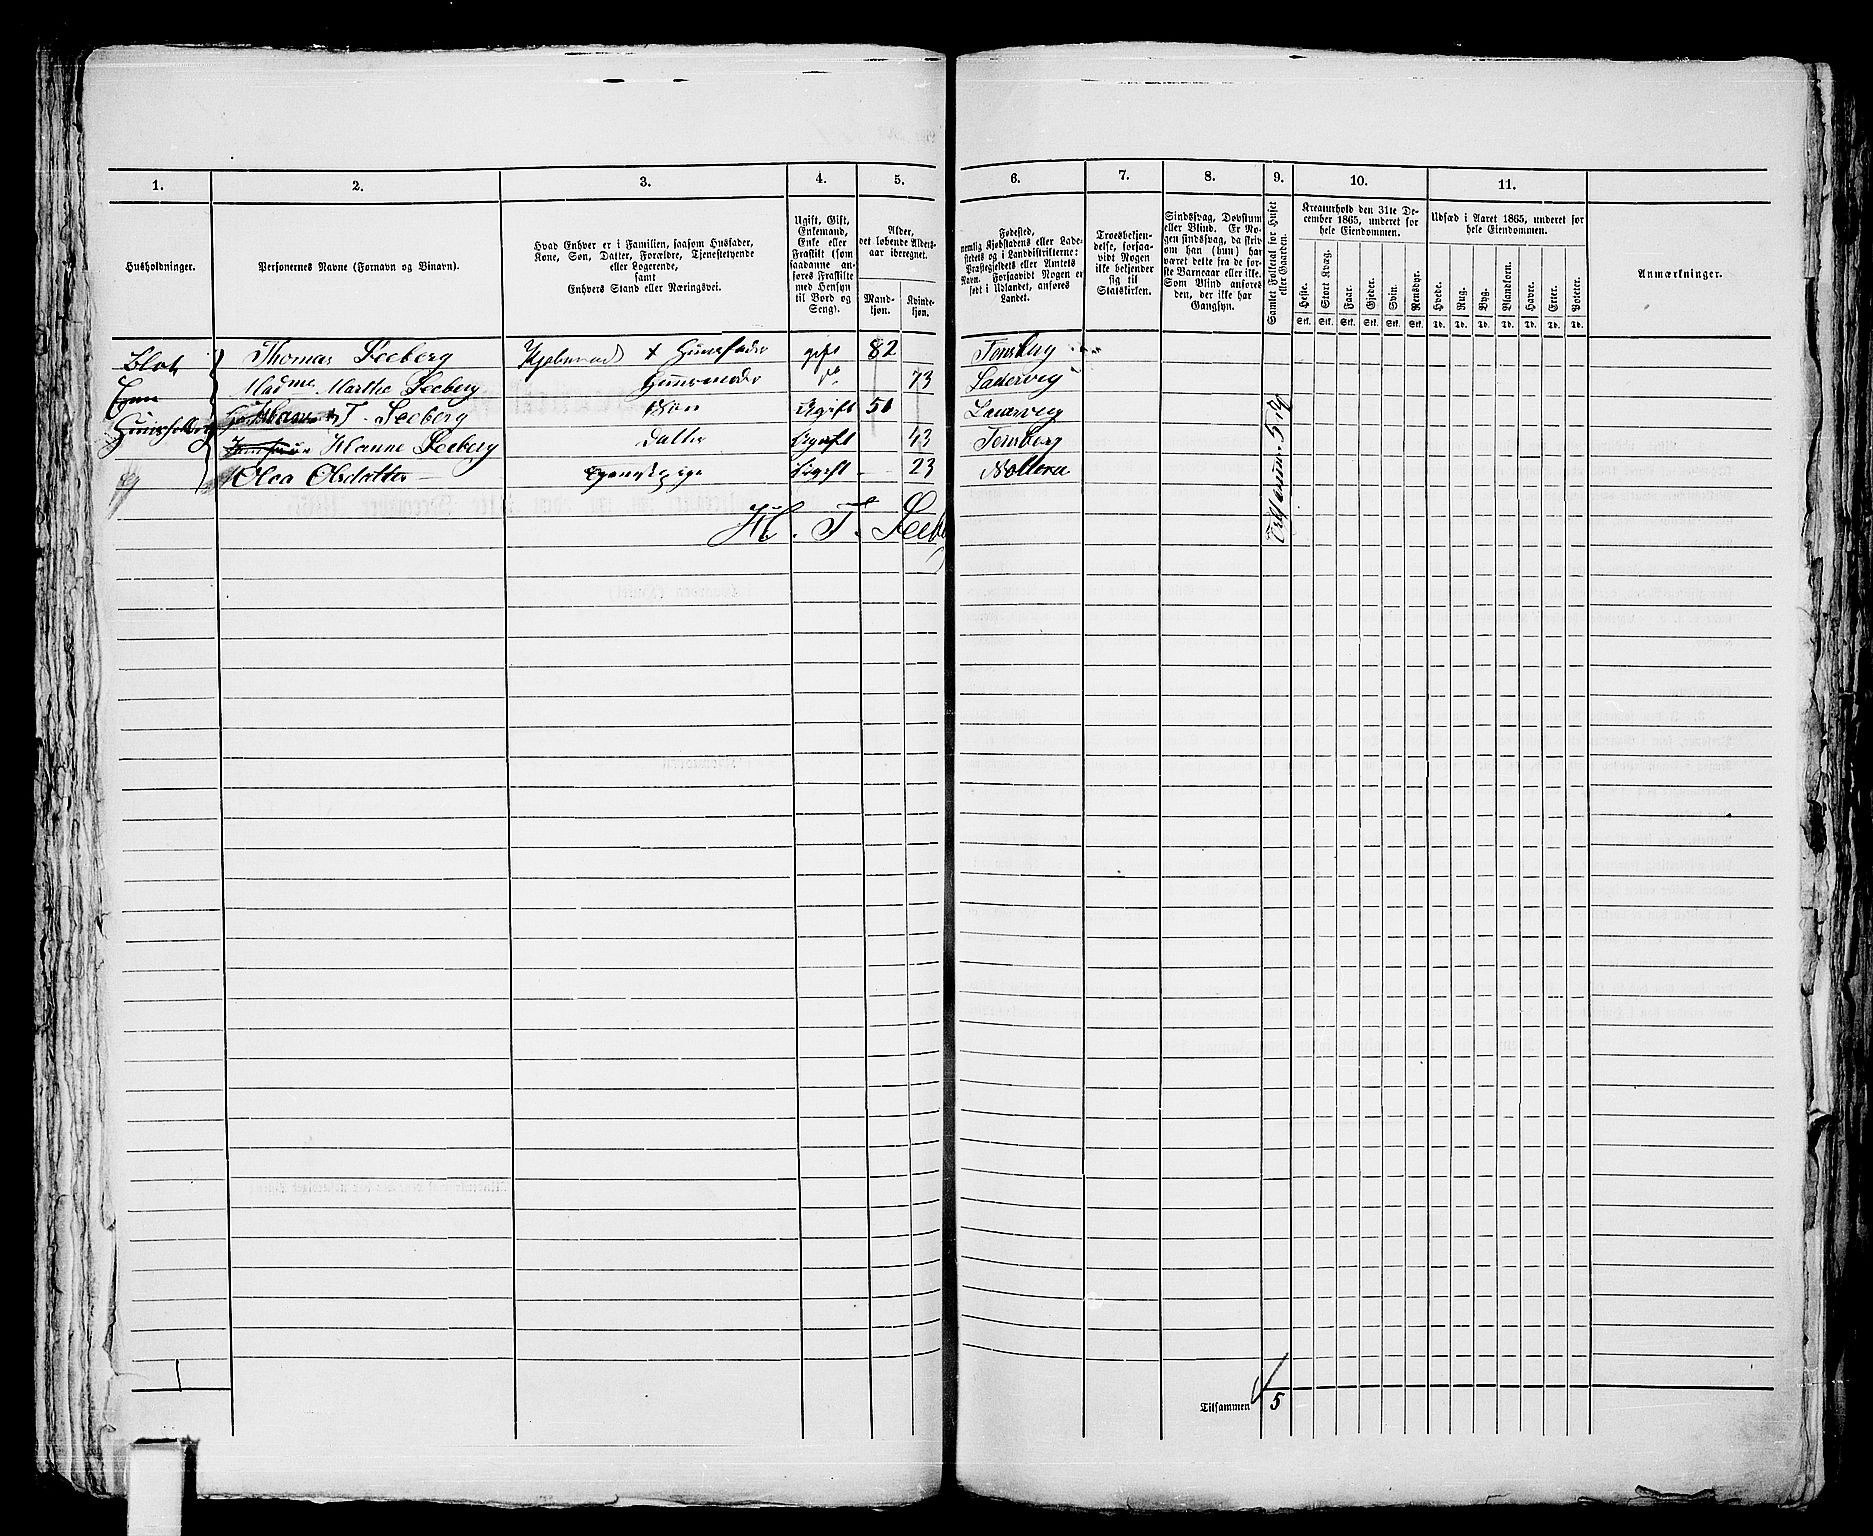 1. 2. 3. 4. 5. 6. 7. 8. 9. 10. 11.
Husholdninger.
Personernes Navne (Fornavn og Binavn).
Hvad Enhver er i Familien, saasom Husfader,
Kone, Søn, Datter, Forældre, Tjenestetyende
eller Logerende,
samt
Enhvers Stand eller Næringsvei.
Ugift, Gift,
Enkemand,
Enke eller
Fraskilt (som
saadanne anføres Fraskilte
med Hensyn
til Bord og
Seng).
Alder,
det løbende Alders-
aar iberegnet.
Mand-
kjøn.
Kvinde-
kjøn.
Fødested,
nemlig Kjøbstadens eller Lade-
stedets og i Landdistrikterne:
Præstegjeldets eller Amtets
Navn. Forsaavidt Nogen er
født i Udlandet, anføres
Landet.
Troesbekjen-
delse, forsaa-
vidt Nogen
ikke bekjender
sig til
Statskirken.
Sindssvag, Døvstum
eller Blind. Er No-
gen sindssvag, da skriv
om han (hun) har
været dette fra de før-
ste Barneaar eller ikke.
Som Blind anføres
den, der ikke har
Gangsyn.
Samlet Folketal for Huset
eller Gaarden.
Kreaturhold den 31te De-
cember 1865, underet for
hele Eiendommen.
Heste. Stort Kvæg. Faar. Gjeder. Svin. Rensdyr.
Stk. Stk. Stk. Stk. Stk. Stk.
Udsæd i Aaret 1865, underet for
hele Eiendommen.
Hvede. Rug. Byg. Blandkorn. Havre. Erter. Poteter.
Td. Td. Td. Td. Td. Td. Td.
Anmærkninger.
Blot Thomas Seeberg Huusfader gift 82 Tønsberg
Een Madme Marthe Seeberg Huusmoder do 73 Laurvig
Huusholdning T. Seeberg Søn Ugift 51 Laurvig
Hanne Seeberg Datter Ugift 43 Tønsberg
Olea Olsdatter Ugift 23 Nøtterø
H. T. Seeberg
Tilsammen 5